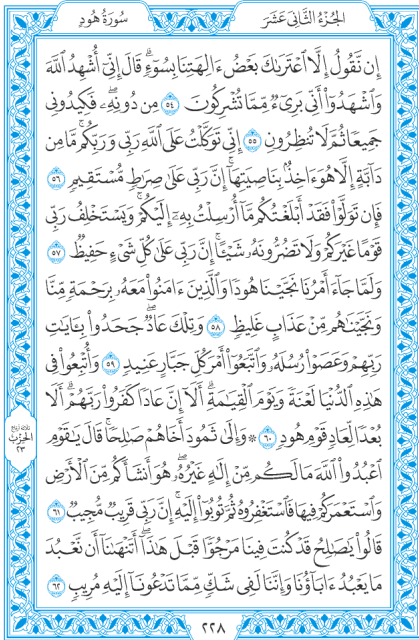 الجُزْءُ الثَّانِي عَشَرَ
سُورَةُ هُودٍ
إِن نَّقُولُ إِلَّا ٱعْتَرَىٰكَ بَعْضُ ءَالِهَتِنَا بِسُوٓءٍۗ قَالَ إِنِّيٓ أُشْهِدُ ٱللَّهَ
وَٱشْهَدُوٓا۟ أَنِّي بَرِيٓءٌ مِّمَّا تُشْرِكُونَ ٥٤ مِن دُونِهِۦۖ فَكِيدُونِي
جَمِيعًا ثُمَّ لَا تُنظِرُونِ ٥٥ إِنِّي تَوَكَّلْتُ عَلَى ٱللَّهِ رَبِّي وَرَبِّكُمۚ مَّا مِن
دَآبَّةٍ إِلَّا هُوَ ءَاخِذٌۢ بِنَاصِيَتِهَآۚ إِنَّ رَبِّي عَلَىٰ صِرَٰطٍ مُّسْتَقِيمٍ ٥٦
فَإِن تَوَلَّوْا۟ فَقَدْ أَبْلَغْتُكُم مَّآ أُرْسِلْتُ بِهِۦٓ إِلَيْكُمْۚ وَيَسْتَخْلِفُ رَبِّي
قَوْمًا غَيْرَكُمْ وَلَا تَضُرُّونَهُۥ شَيْـًٔاۚ إِنَّ رَبِّي عَلَىٰ كُلِّ شَيْءٍ حَفِيظٌ ٥٧
وَلَمَّا جَآءَ أَمْرُنَا نَجَّيْنَا هُودًا وَٱلَّذِينَ ءَامَنُوا۟ مَعَهُۥ بِرَحْمَةٍ مِّنَّا
وَنَجَّيْنَٰهُم مِّنْ عَذَابٍ غَلِيظٍ ٥٨ وَتِلْكَ عَادٌۖ جَحَدُوا۟ بِـَٔايَٰتِ
رَبِّهِمْ وَعَصَوْا۟ رُسُلَهُۥ وَٱتَّبَعُوٓا۟ أَمْرَ كُلِّ جَبَّارٍ عَنِيدٍ ٥٩ وَأُتْبِعُوا۟ فِي
هَٰذِهِ ٱلدُّنْيَا لَعْنَةً وَيَوْمَ ٱلْقِيَٰمَةِۗ أَلَآ إِنَّ عَادًا كَفَرُوا۟ رَبَّهُمْۗ أَلَا
بُعْدًا لِّعَادٍ قَوْمِ هُودٍ ٦٠ ۞ وَإِلَىٰ ثَمُودَ أَخَاهُمْ صَٰلِحًاۚ قَالَ يَٰقَوْمِ
ٱعْبُدُوا۟ ٱللَّهَ مَا لَكُم مِّنْ إِلَٰهٍ غَيْرُهُۥۖ هُوَ أَنشَأَكُم مِّنَ ٱلْأَرْضِ
وَٱسْتَعْمَرَكُمْ فِيهَا فَٱسْتَغْفِرُوهُ ثُمَّ تُوبُوٓا۟ إِلَيْهِۚ إِنَّ رَبِّي قَرِيبٌ مُّجِيبٌ ٦١
قَالُوا۟ يَٰصَٰلِحُ قَدْ كُنتَ فِينَا مَرْجُوًّا قَبْلَ هَٰذَآۖ أَتَنْهَىٰنَآ أَن نَّعْبُدَ
مَا يَعْبُدُ ءَابَآؤُنَا وَإِنَّنَا لَفِي شَكٍّ مِّمَّا تَدْعُونَآ إِلَيْهِ مُرِيبٍ ٦٢
الحِزْبُ
٢٣
٢٢٨